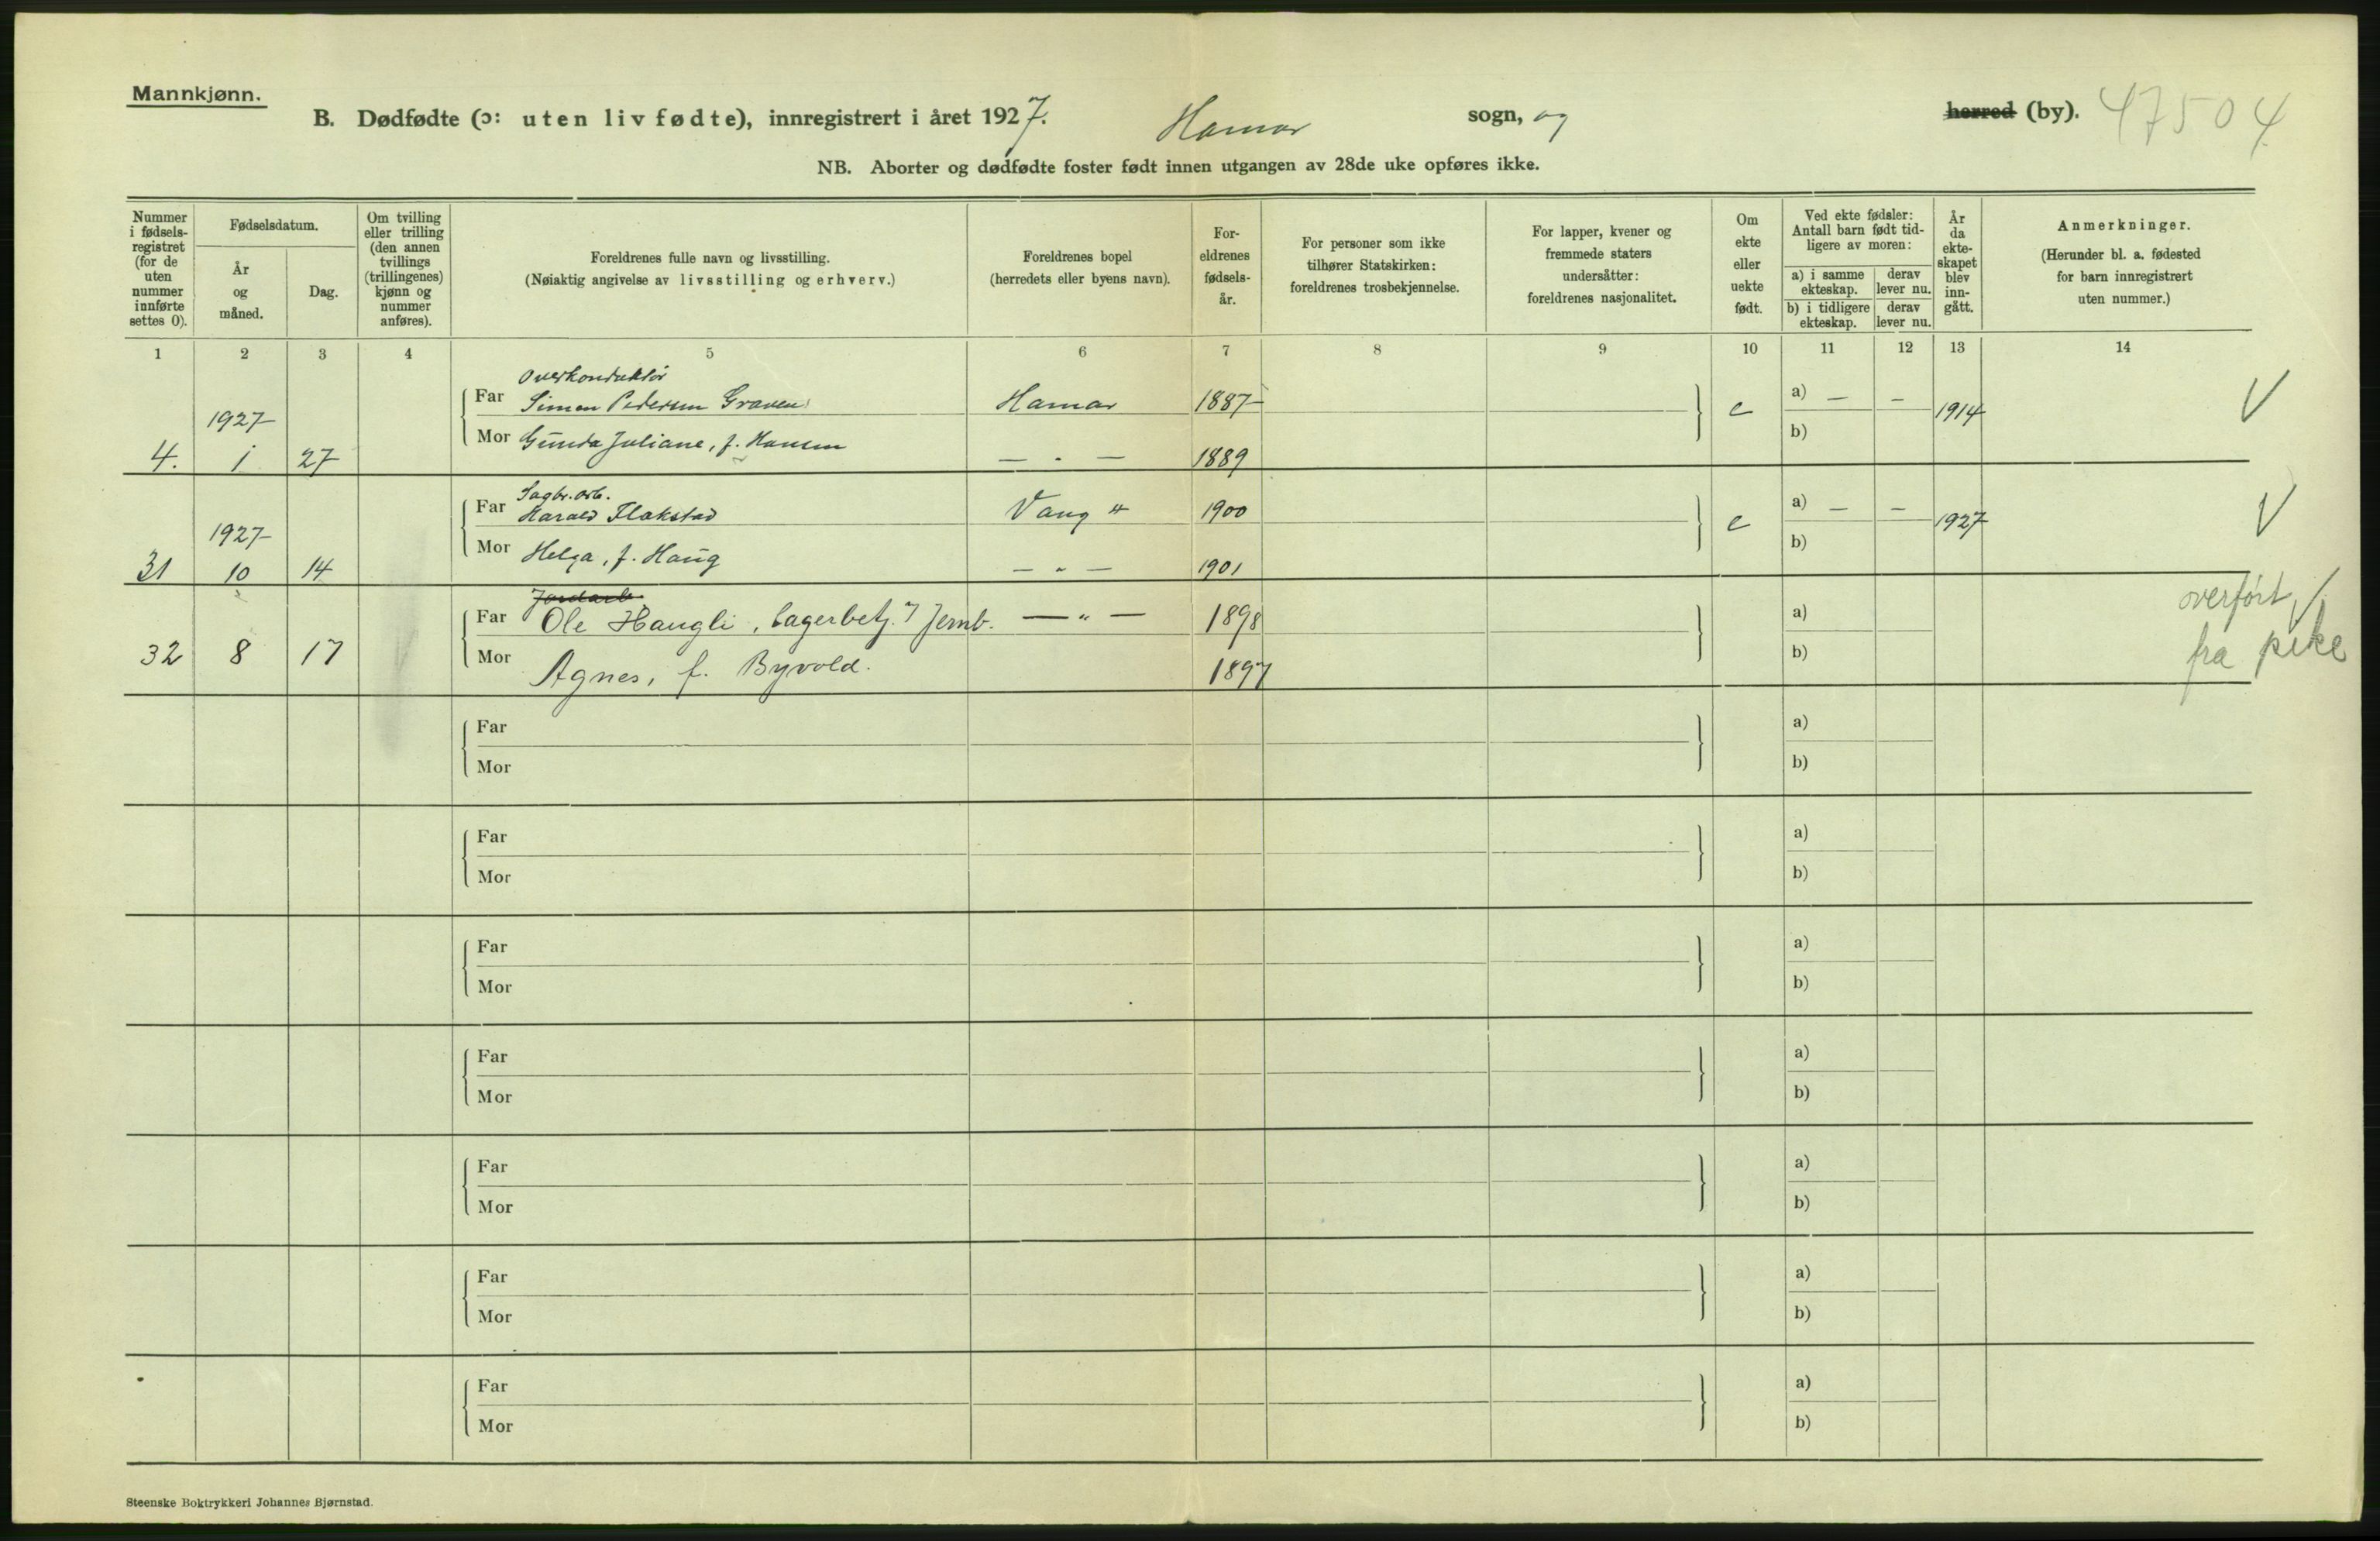 Mannkjønn.
B. Dødfødte (ɔ: uten liv fødte), innregistrert i året 1927. Hamar sogn, og herred (by). 47504
NB. Aborter og dødfødte foster født innen utgangen av 28de uke opføres ikke.
Nummer i fødsels-registret (for de uten nummer innførte settes 0).
Fødselsdatum.
År og måned.
Dag.
Om tvilling eller trilling (den annen tvillings (trillingenes) kjønn og nummer anføres).
Foreldrenes fulle navn og livsstilling.
(Nøiaktig angivelse av livsstilling og erhverv.)
Foreldrenes bopel
(herredets eller byens navn).
For-eldrenes fødsels-år.
For personer som ikke tilhører Statskirken: foreldrenes trosbekjennelse.
For lapper, kvener og fremmede staters undersåtter: foreldrenes nasjonalitet.
Om ekte eller uekte født.
Ved ekte fødsler: Antall barn født tid-ligere av moren:
a) i samme ekteskap.
derav lever nu.
b) i tidligere ekteskap.
derav lever nu.
År da ekte-skapet blev inn-gått.
Anmerkninger.
(Herunder bl. a. fødested for barn innregistrert uten nummer.)
1 2 3 4 5 6 7 8 9 10 11 12 13 14
Overkonduktør
Far Simen Pedersen Graven Hamar 1887 a) — —
1927 e 1914 V
Mor Gunda Juliane, f. Hansen — " — 1889 b)
4. 1 27
Sagbr. arb.
Far Harald Flakstad Vang H 1900 a) — —
1927 e 1927 V
Mor Helga, f. Haug — " — 1901 b)
31 10 14
Jordarb.
Far Ole Haugli, Lagerbetj. v Jernb. — " — 1898 a) overført V
32 8 17
Mor Agnes, f. Byvold. 1897 b) fra pike
Far a)
Mor b)
Far a)
Mor b)
Far a)
Mor b)
Far a)
Mor b)
Far a)
Mor b)
Far a)
Mor b)
Far a)
Mor b)
Steenske Boktrykkeri Johannes Bjørnstad.